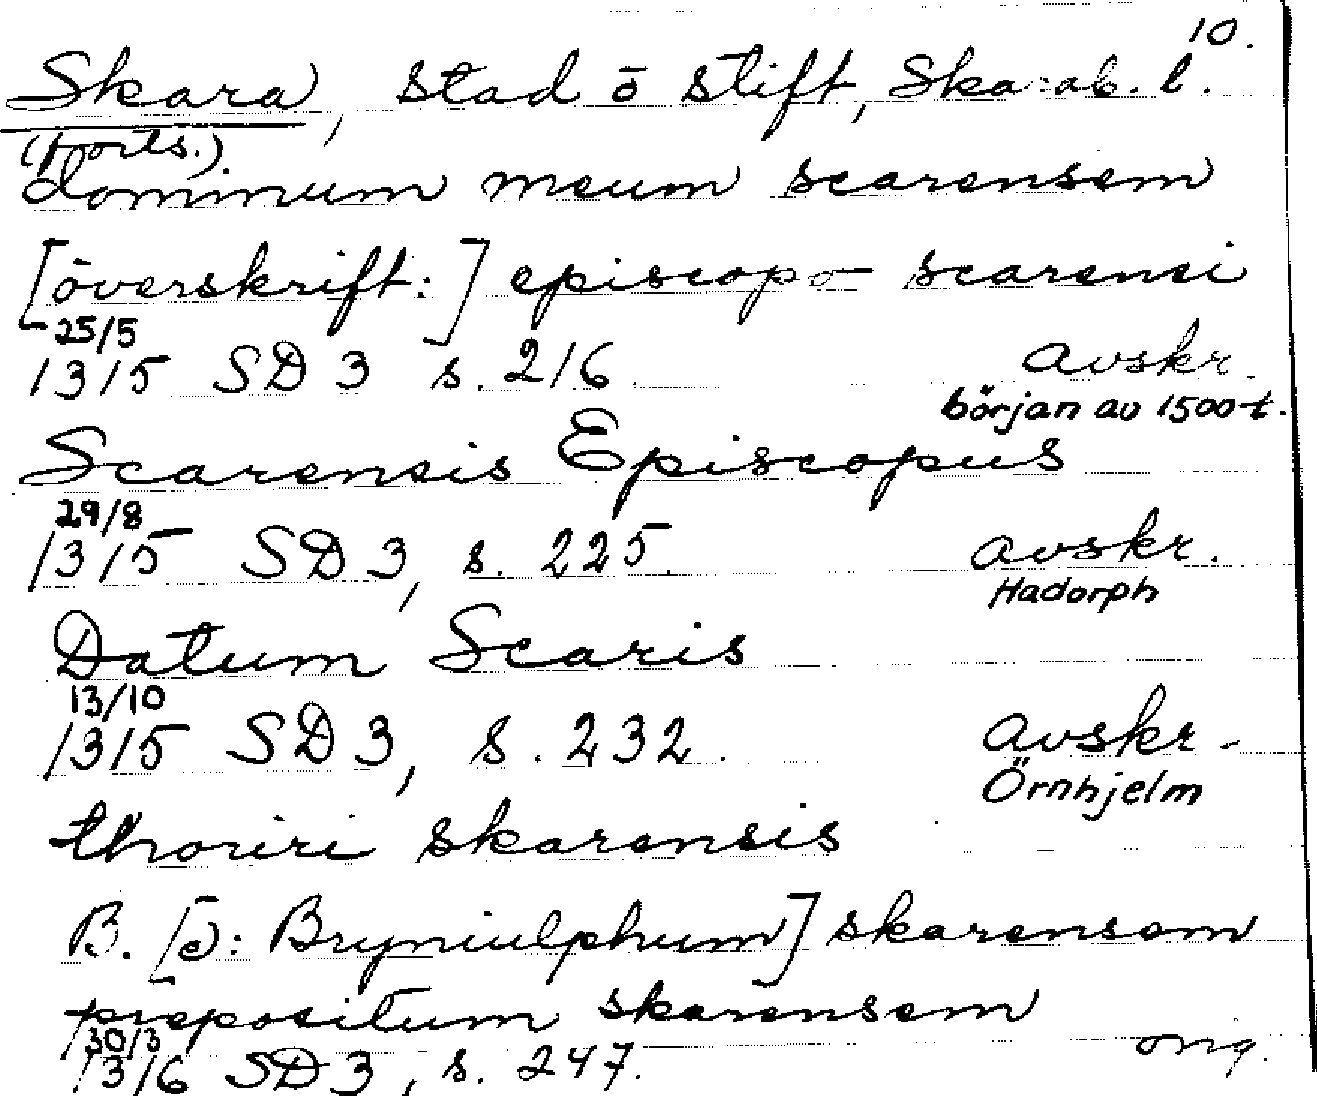 10.
Skara, stad o stift, Skarab. l.
(forts.)
dominum meum scarensem
[överskrift:] episcopo scarensi
25/5
1315 SD 3 s. 216 avskr.
början av 1500-t.
Scarensis Episcopus
29/8
1315 SD 3, s. 225. avskr.
Hadorph
Datum Scaris
13/10
1315 SD 3, s. 232. avskr.
Örnhjelm
thoriri skarensis
B. [ɔ: Bryniulphum] skarensem
prepositum skarensem
30/3
1316 SD 3, s. 247. orig.